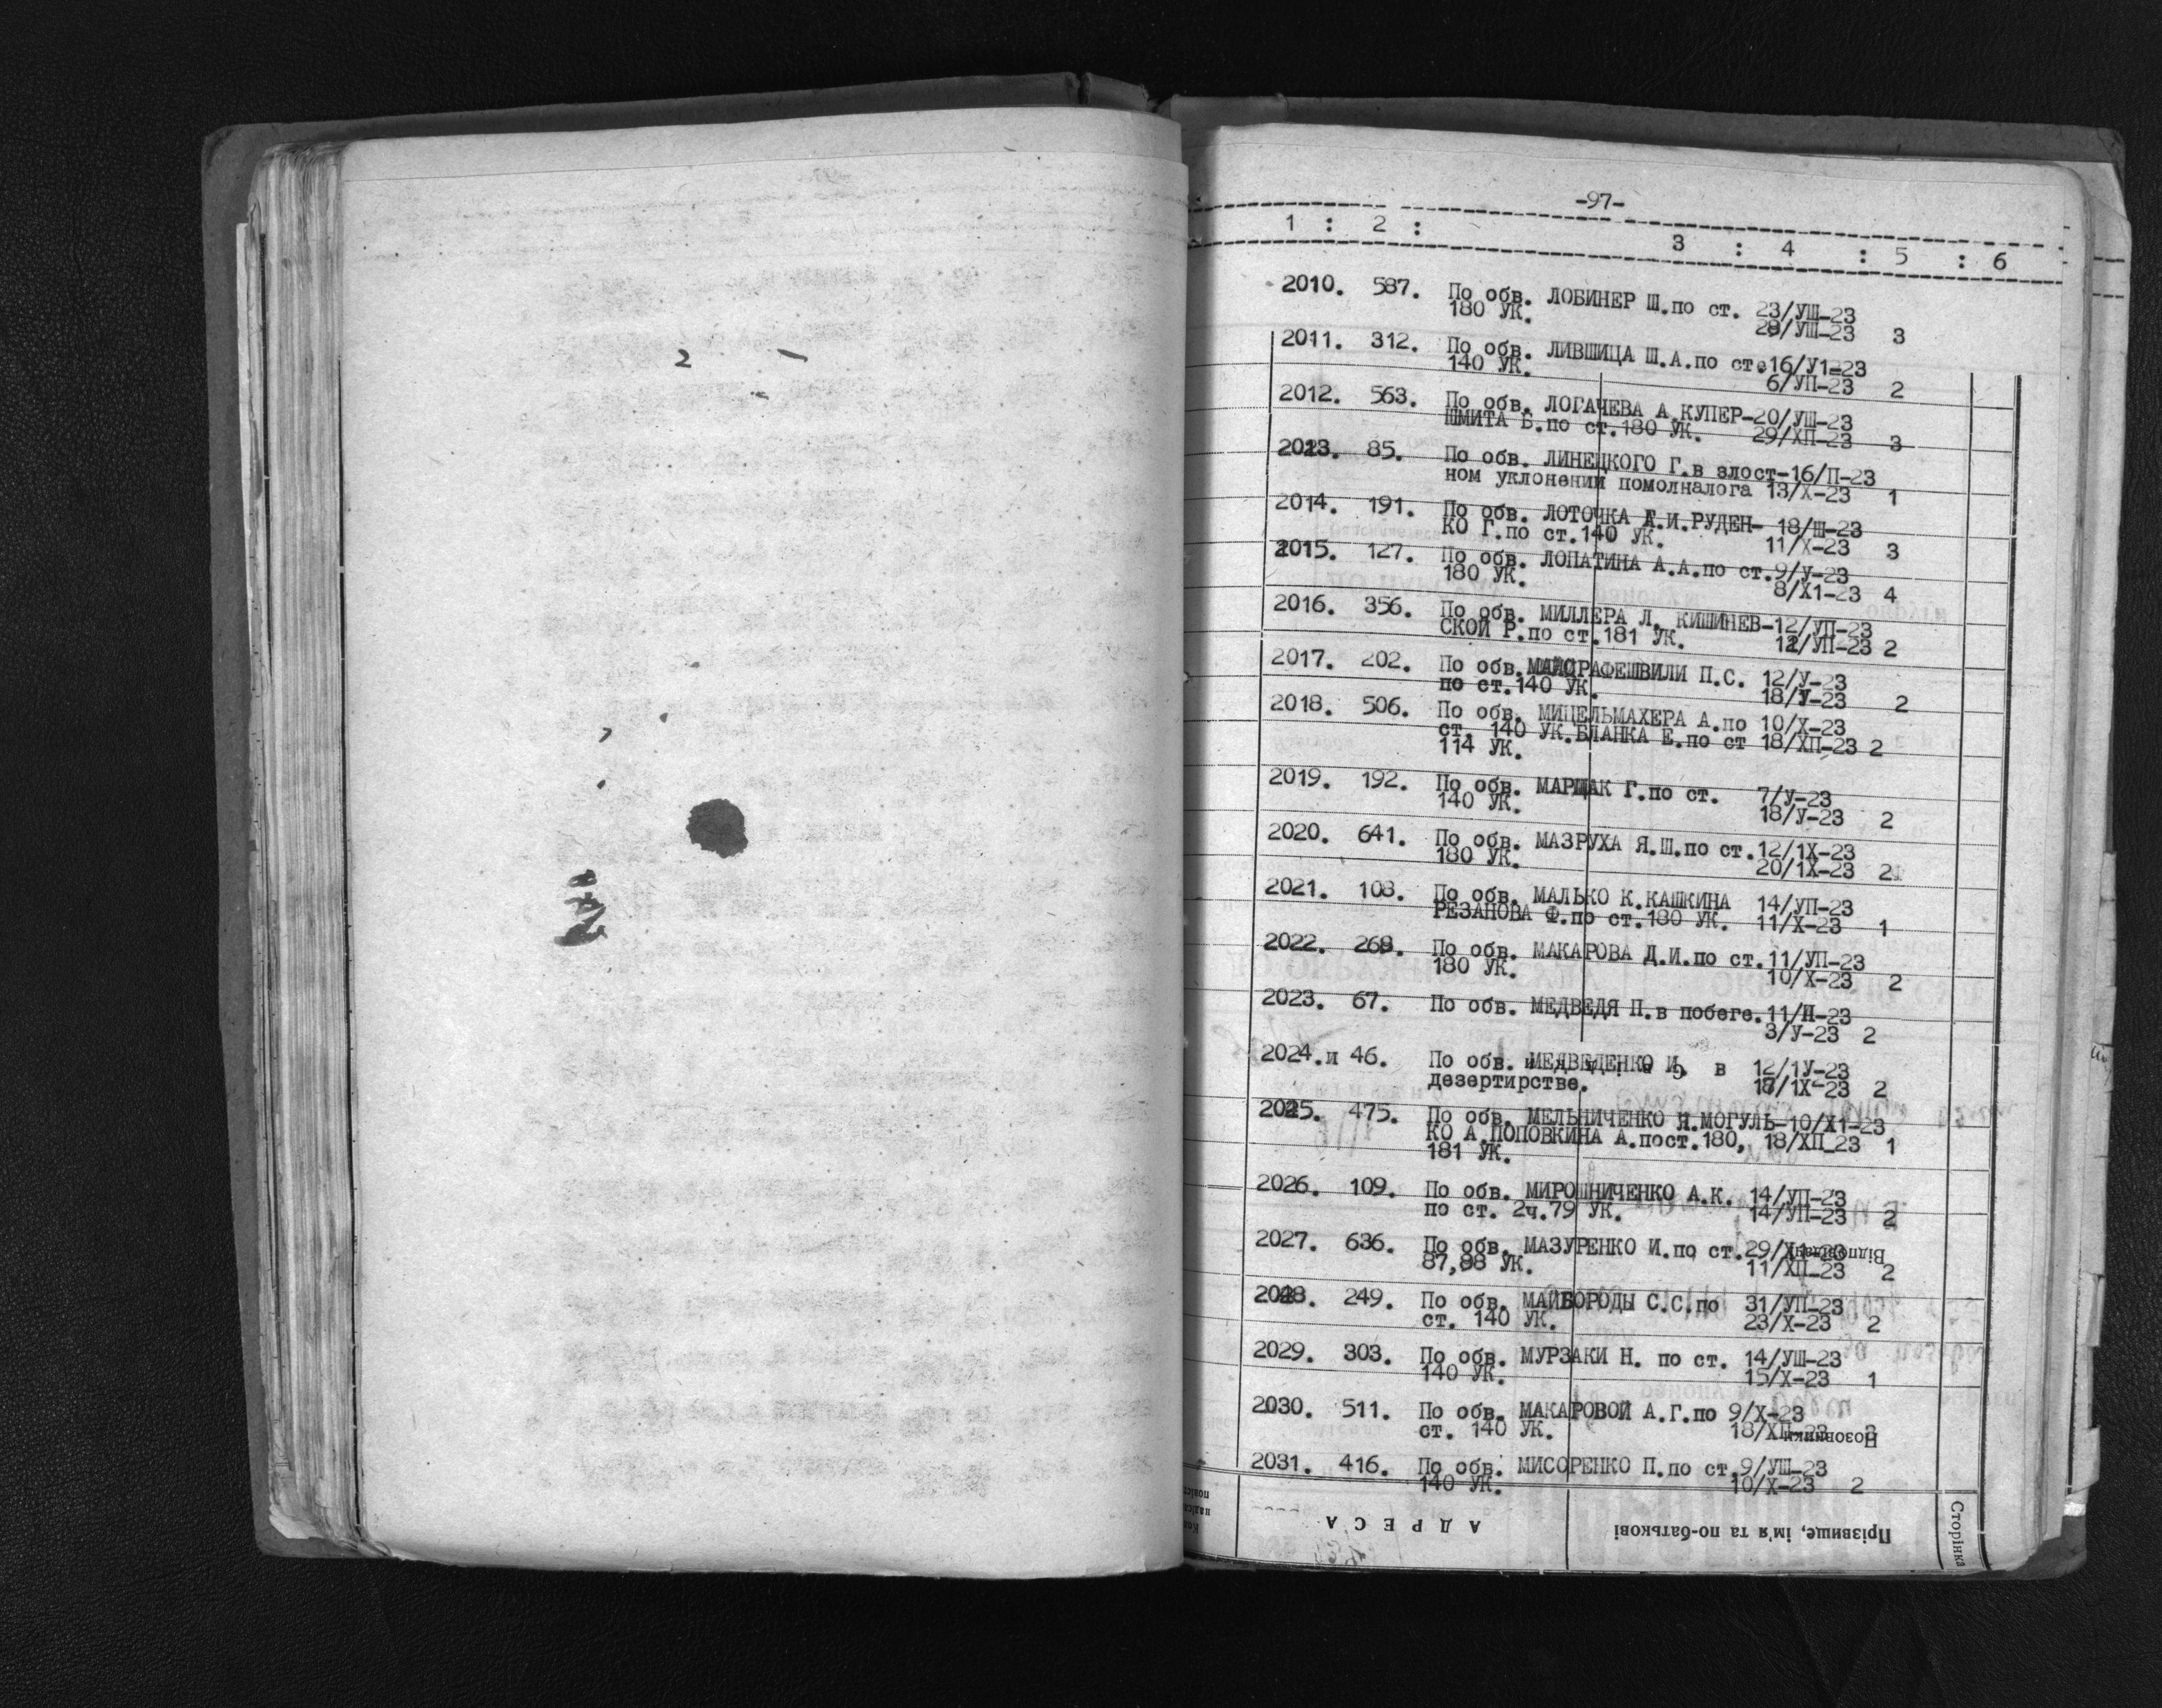 -97-
1 : 2 : 3 : 4 : 5 : 6
2010. 587. По обв. ЛОБИНЕР Ш.по ст. 23/УШ-23
180 УК. 28/УШ-23 3
2011. 312. По обв. ЛИВШИЦА Ш.А.по ст.16/У1-23
140 УК. 6/УП-23 2
2012. 563. По обв. ЛОГАЧЕВА А.КУПЕР-20/УШ-23
ШМИТА Б.по ст.180 УК. 29/ХП-23 3
2013. 85. По обв. ЛИНЕЦКОГО Г.в злост-16/П-23
ном уклонении помолналога 13/Х-23 1
2014. 191. По обв. ЛОТОЧКА Г.И.РУДЕН- 18/Ш-23
КО Г.по ст.140 УК. 11/Х-23 3
2015. 127. По обв. ЛОПАТИНА А.А.по ст.9/У-23
180 УК. 8/Х1-23 4
2016. 356. По обв. МИЛЛЕРА Л. КИШИНЕВ-12/УП-23
СКОЙ Р.по ст.181 УК. 12/УП-23 2
2017. 202. По обв. П.С. 12/У-23
по ст.140 УК. 18/У-23 2
2018. 506. По обв. МИЦЕЛЬМАХЕРА А.по 10/Х-23
ст. 140 УК.БЛАНКА Е.по ст 18/ХП-23 2
114 УК.
2019. 192. По обв. МАРЩАК Г.по ст. 7/У-23
140 УК. 18/У-23 2
2020. 641. По обв. МАЗРУХА Я.Ш.по ст.12/1Х-23
180 УК. 20/1Х-23 2
2021. 108. По обв. МАЛЬКО К.КАШКИНА 14/УП-23
РЕЗАНОВА Ф.по ст.180 УК. 11/Х-23 1
2022. 268. По обв. МАКАРОВА Д.И.по ст.11/УП-23
180 УК. 10/Х-23 2
2023. 67. По обв. МЕДВЕДЯ П.в побеге.11/П-23
3/У-23 2
2024.и 46. По обв. МЕДВЕДЕНКО И. в 12/1У-23
дезертирстве. 18/1Х-23 2
2025. 475. По обв. МЕЛЬНИЧЕНКО Я.МОГУЛЬ-10/Х1-23
КО А.ПОПОВКИНА А.пост.180, 18/ХП-23 1
181 УК.
2026. 109. По обв. МИРОШНИЧЕНКО А.К. 14/УП-23
по ст. 2ч.79 УК. 14/УП-23 2
2027. 636. По обв. МАЗУРЕНКО И.по ст.29/Х1-23
Відповідач
87,98 УК. 11/ХП-23 2
2028. 249. По обв. МАЙБОРОДЫ С.С.по 31/УП-23
ст. 140 УК. 23/Х-23 2
2029. 303. По обв. МУРЗАКИ Н. по ст. 14/УШ-23
140 УК. 15/Х-23 1
2030. 511. По обв. МАКАРОВОЙ А.Г.по 9/Х-23
ст. 140 УК. 18/ХП-23
Позовники
2031. 416. По обв. МИСОРЕНКО П.по ст.9/УШ-23
140 УК. 10/Х-23 2
АДРЕСА
Прізвище, ім'я та по-батькові
Сторінка